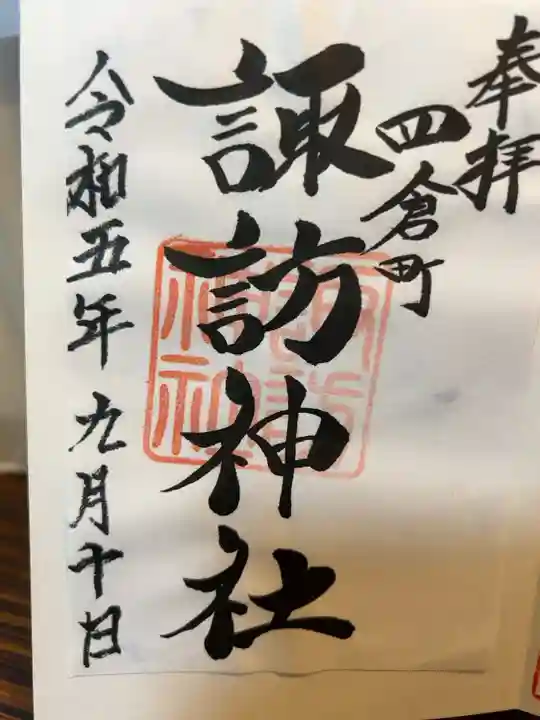 奉拝
四倉町
諏訪神社
令和五年九月十日